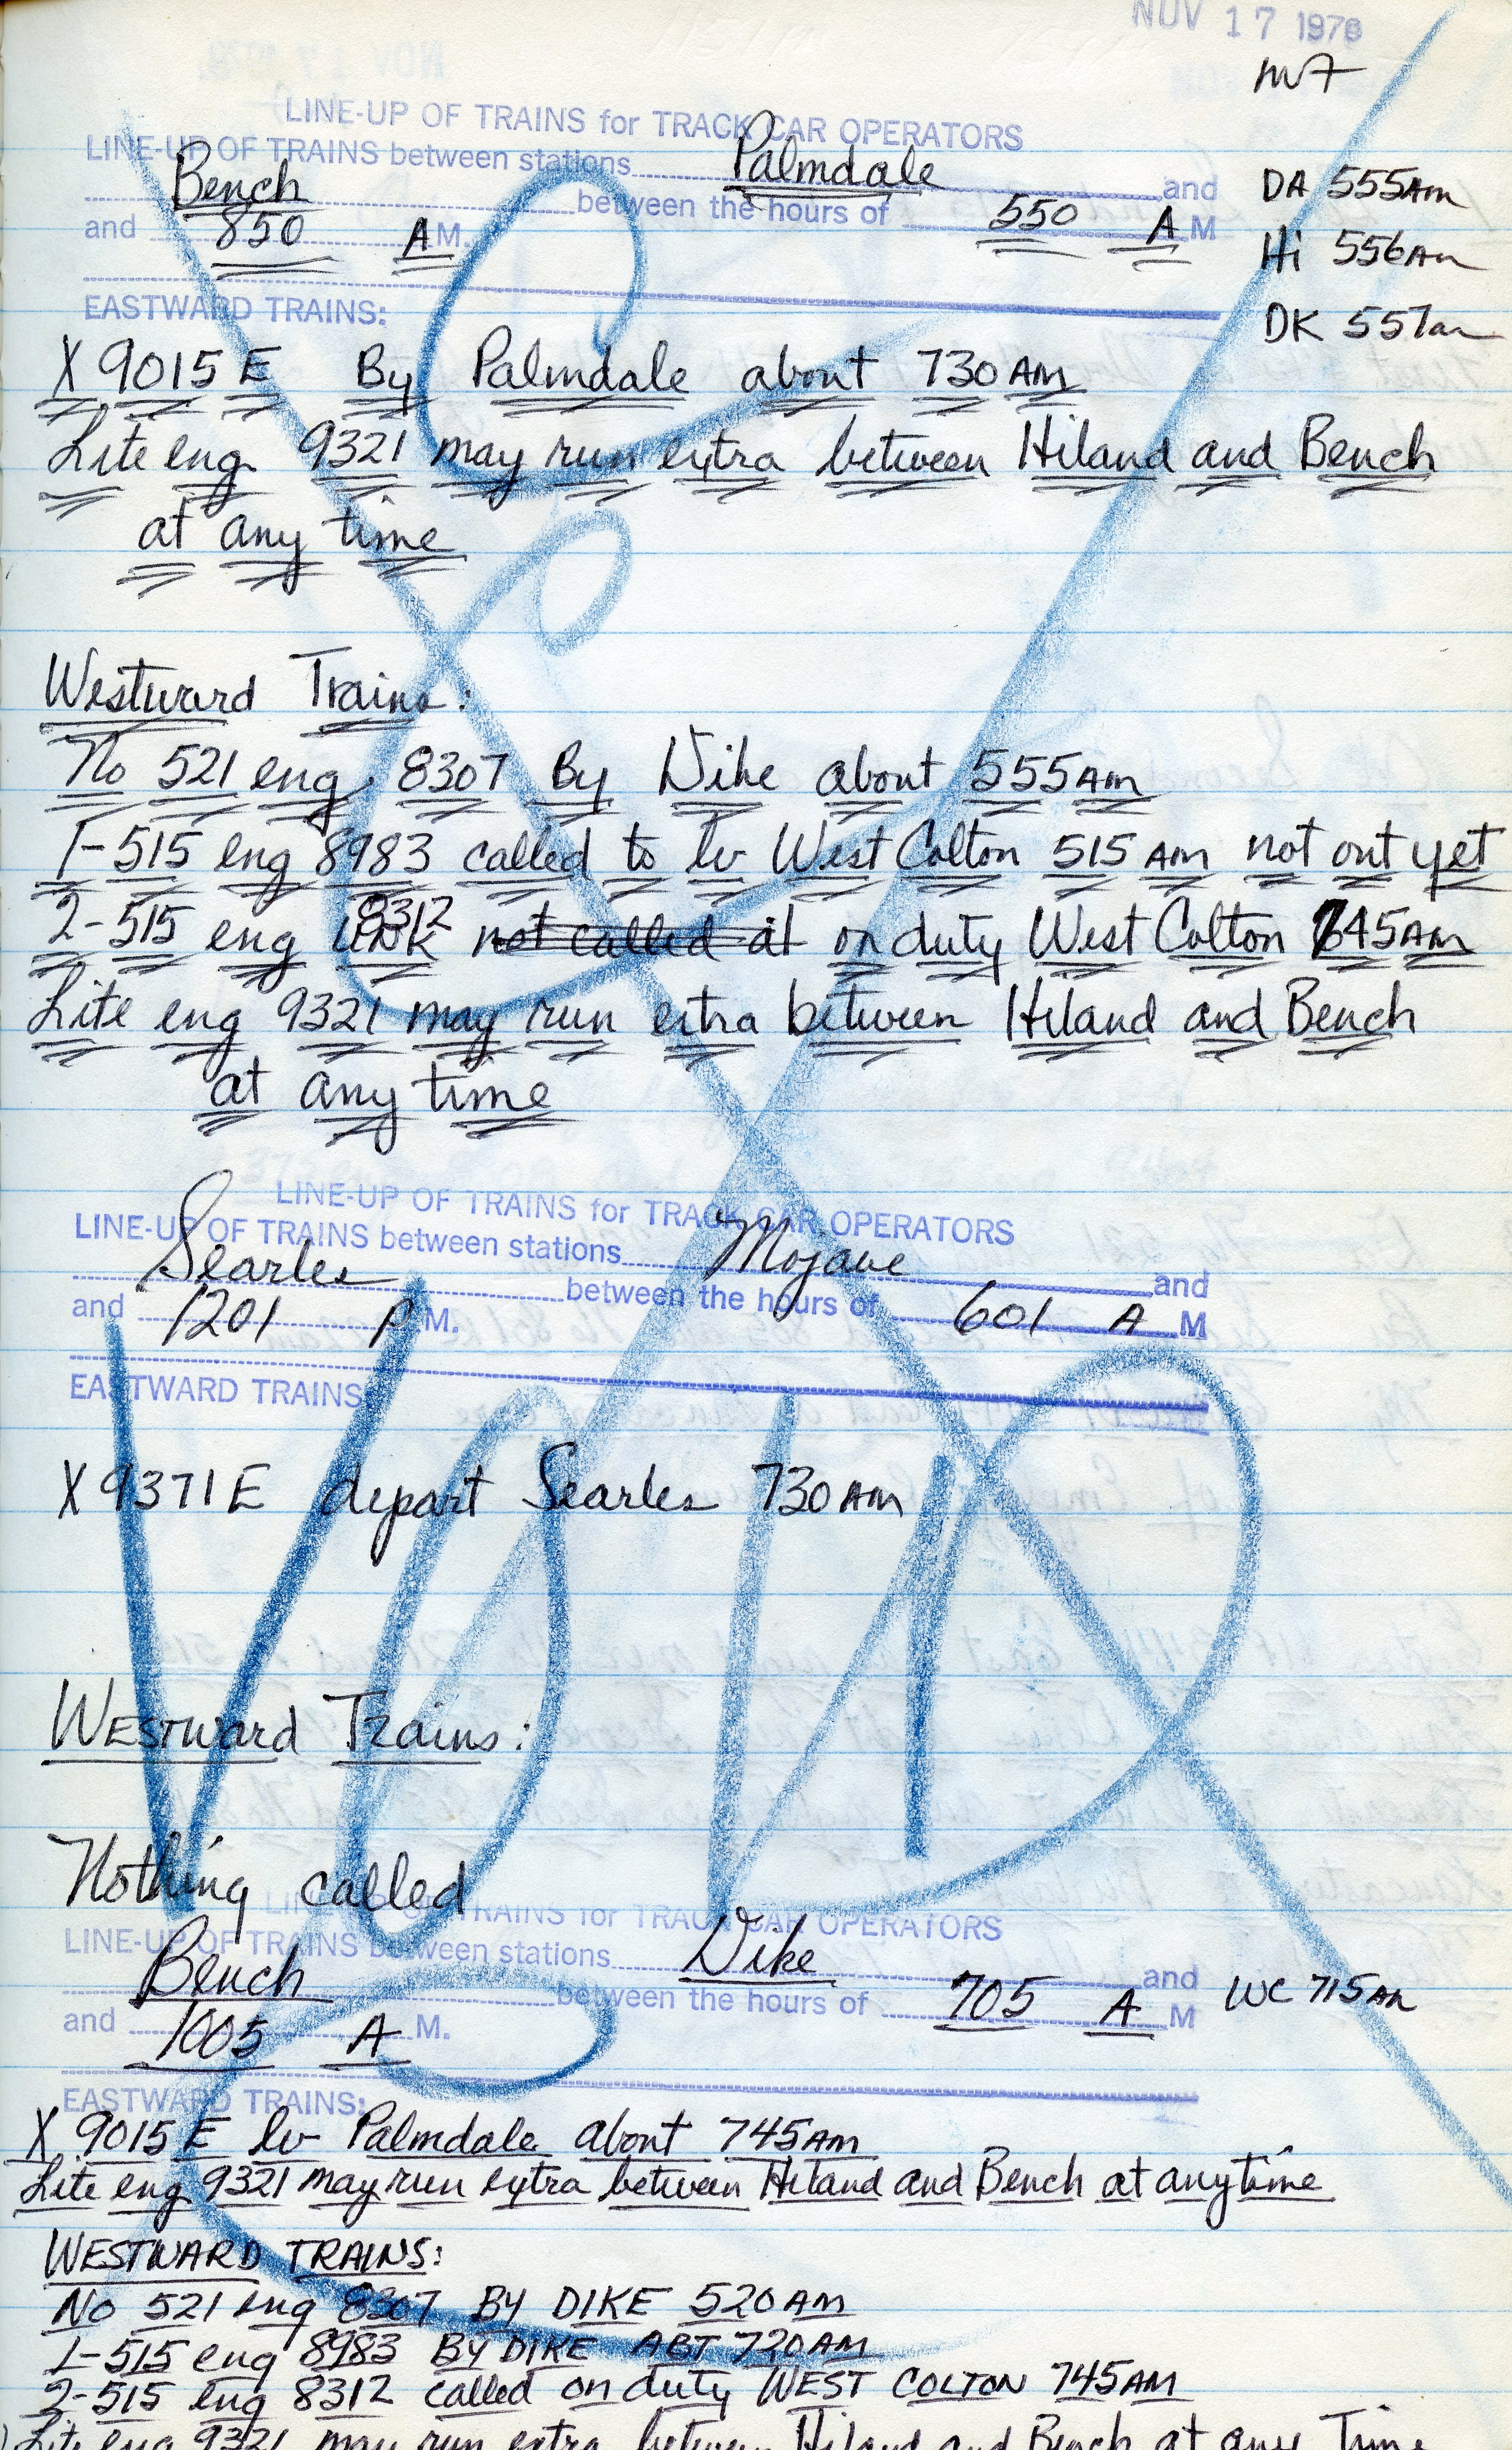 NOV 17 1978
LINE-UP OF TRAINS for TRACK CAR OPERATORS
LINE-UP OF TRAINS between stations Palmdale and
Bench between the hours of 550 A M
and 850 A M.
DA 555AM
Hi 556AM
DK 557AM
EASTWARD TRAINS:
X 9015 E By Palmdale about 730 AM
Lite eng 9321 may run extra between Hiland and Bench
at any time
Westward Trains:
No 521 eng 8307 By Dike about 555AM
1-515 eng 8983 called to lv West Colton 515 AM not out yet
2-515 eng UNK 8312 not called at on duty West Colton 745AM
Lite eng 9321 may run extra between Hiland and Bench
at any time
LINE-UP OF TRAINS for TRACK CAR OPERATORS
LINE-UP OF TRAINS between stations Mojave and
Searles between the hours of 601 A M
and 1201 P M.
EASTWARD TRAINS:
X 9371 E depart Searles 730 AM
VOID
Westward Trains:
Nothing called
LINE-UP OF TRAINS for TRACK CAR OPERATORS
LINE-UP OF TRAINS between stations Dike and
Bench between the hours of 705 A M
and 1005 A M.
WC 715AM
EASTWARD TRAINS:
X 9015 E lv Palmdale about 745AM
Lite eng 9321 may run extra between Hiland and Bench at anytime
WESTWARD TRAINS:
No 521 eng 8307 BY DIKE 520AM
1-515 eng 8983 BY DIKE ABT 720AM
2-515 eng 8312 called on duty WEST COLTON 745AM
Lite eng 9321 may run extra between Hiland and Bench at any Time